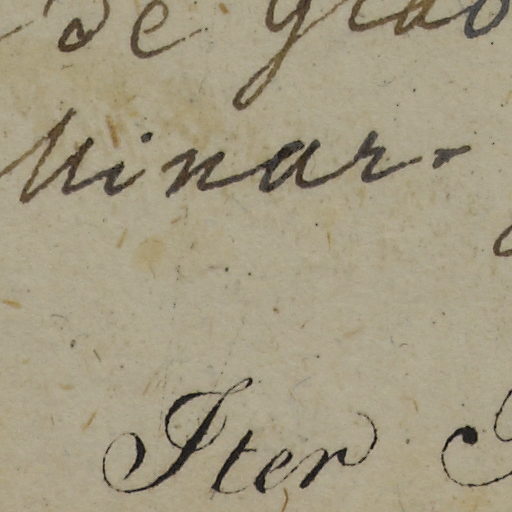 de
Minar.
Iter